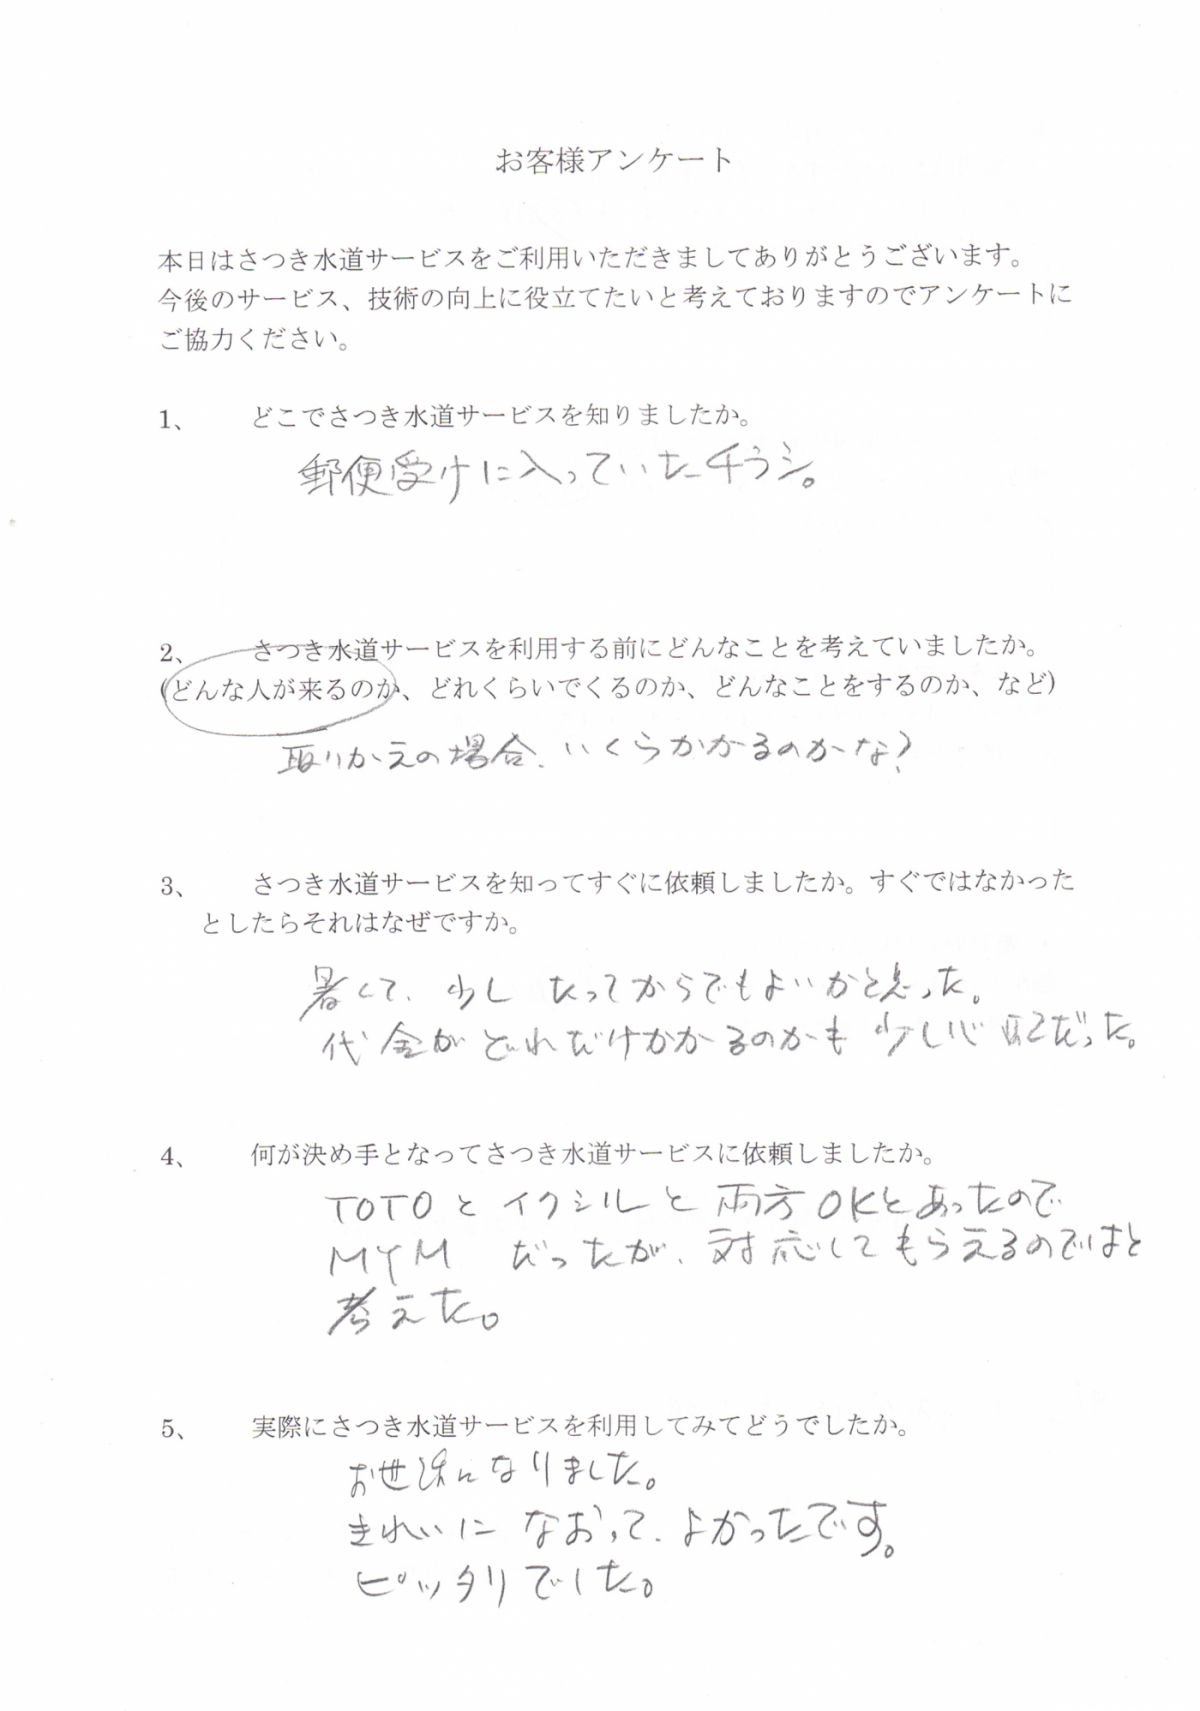 お客様アンケート
本日はさつき水道サービスをご利用いただきましてありがとうございます。
今後のサービス、技術の向上に役立てたいと考えておりますのでアンケートに
ご協力ください。
1、 どこでさつき水道サービスを知りましたか。
郵便受けに入っていたチラシ。
2、 さつき水道サービスを利用する前にどんなことを考えていましたか。
(どんな人が来るのか、どれくらいでくるのか、どんなことをするのか、など)
取りかえの場合、いくらかかるのかな?
3、 さつき水道サービスを知ってすぐに依頼しましたか。すぐではなかった
としたらそれはなぜですか。
暑くて、少し たってからでもよいかと思った。
代金がどれだけかかるのかも少し心配だった。
4、 何が決め手となってさつき水道サービスに依頼しましたか。
TOTOとイクシルと両方OKとあったので
MYM だったが、対応してもらえるのではと
考えた。
5、 実際にさつき水道サービスを利用してみてどうでしたか。
お世話になりました。
きれいになおって、よかったです。
ピッタリでした。